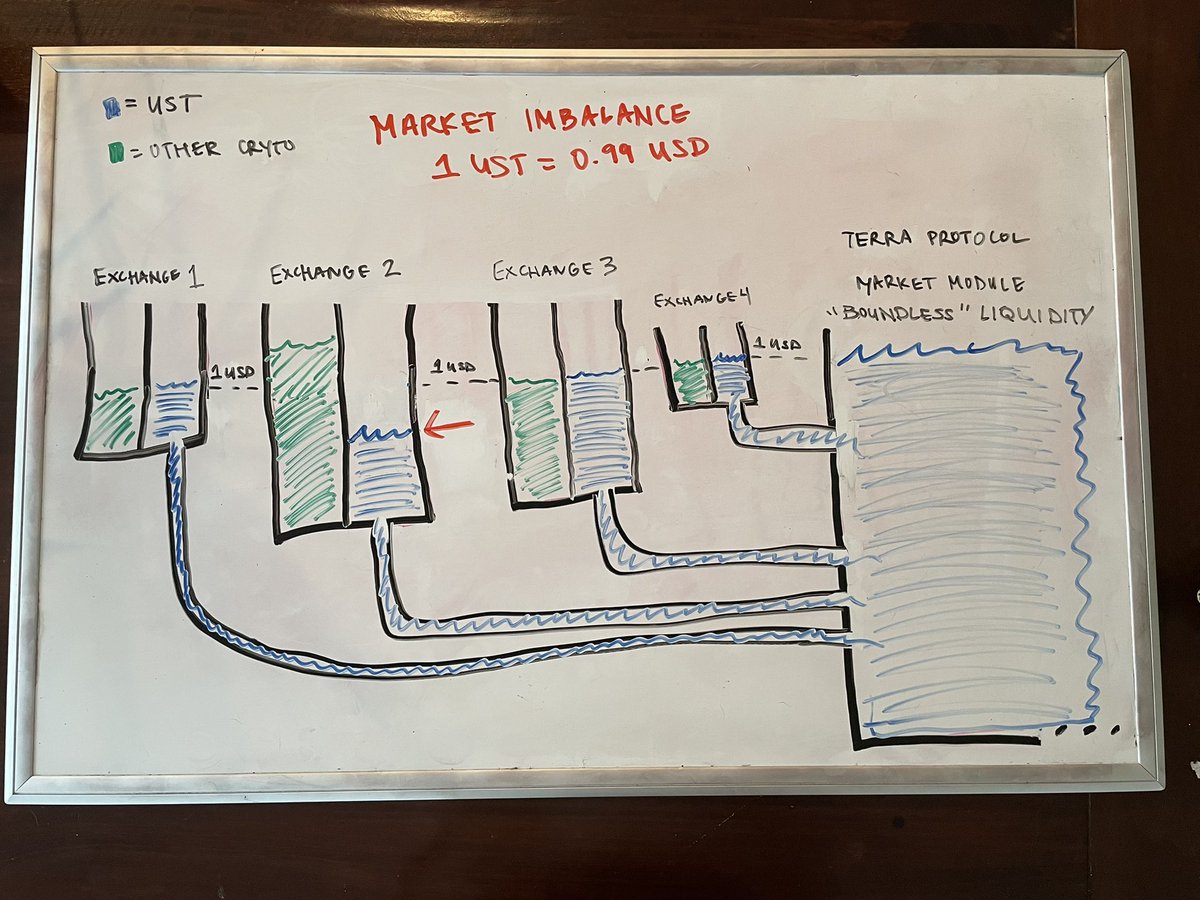 = UST
= OTHER CRYTO
MARKET IMBALANCE
1 UST = 0.99 USD
TERRA PROTOCOL
MARKET MODULE
"BOUNDLESS" LIQUIDITY
EXCHANGE 1
EXCHANGE 2
EXCHANGE 3
EXCHANGE 4
1 USD
1 USD
1 USD